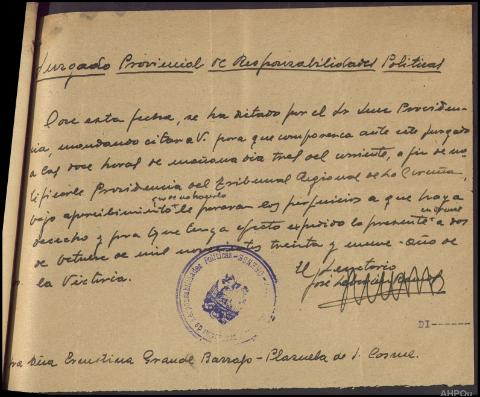 Juzgado Provincial de Responsabilidades Politicas
Con esta fecha, se ha dictado por el Sr Juez Providen-
cia, mandando citar a V. para que comparezca ante este Juzgado
a las doce horas de mañana dia tres del corriente, a fin de no-
tificarle Providencia del Tribunal Regional de La Coruña,
que de no hacerlo
bajo apercibimiento le pararan los perjuicios a que haya
derecho y para que tenga efecto expido la presente a dos
de Octubre de mil novecientos treinta y nueve - Año de
la Victoria.
El Secretario
José
DI------
Dña Ernestina Grande Barrajo - Plazuela de S. Cosme.
Responsabilidades Politicas - ORENSE
AHPOu